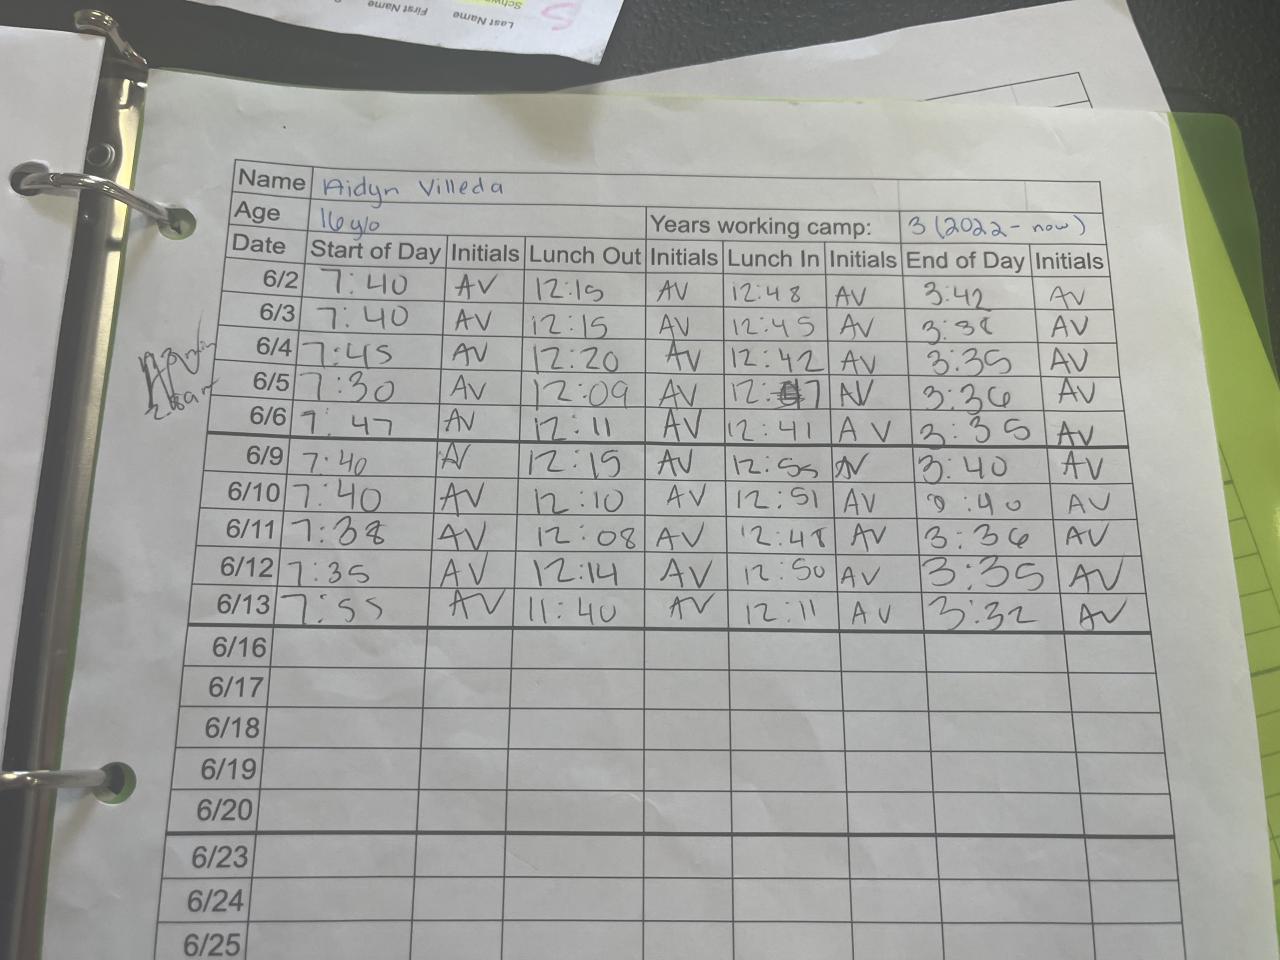 Last Name First Name
Name Aidyn Villeda
Age 16 y/o Years working camp: 3 (2022 - now)
Date Start of Day Initials Lunch Out Initials Lunch In Initials End of Day Initials
6/2 7:40 AV 12:15 AV 12:48 AV 3:42 AV
6/3 7:40 AV 12:15 AV 12:45 AV 3:38 AV
6/4 7:45 AV 12:20 AV 12:42 AV 3:35 AV
6/5 7:30 AV 12:09 AV AV 3:36 AV
6/6 7:47 AV 12:11 AV 12:41 AV 3:35 AV
6/9 7:40 AV 12:15 AV 12:55 AV 3:40 AV
6/10 7:40 AV 12:10 AV 12:51 AV :40 AV
6/11 7:38 AV 12:08 AV 12:48 AV 3:36 AV
6/12 7:35 AV 12:14 AV 12:50 AV 3:35 AV
6/13 7:55 AV 11:40 AV 12:11 AV 3:32 AV
6/16
6/17
6/18
6/19
6/20
6/23
6/24
6/25